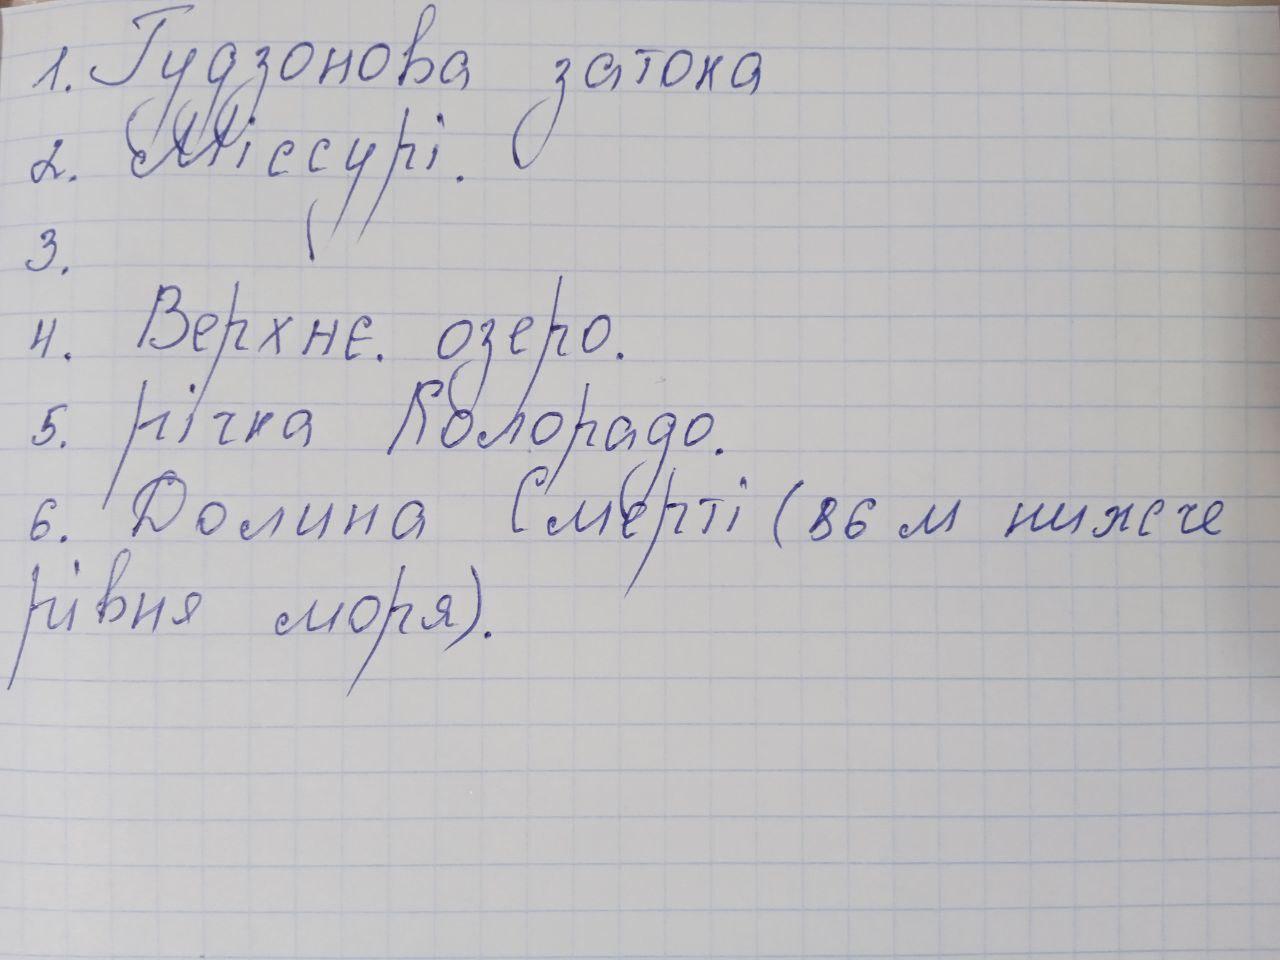 1. Гудзонова затока
2. Міссурі.
3.
4. Верхнє. озеро.
5. річка Колорадо.
6. Долина Смерті (86 м нижче
рівня моря).